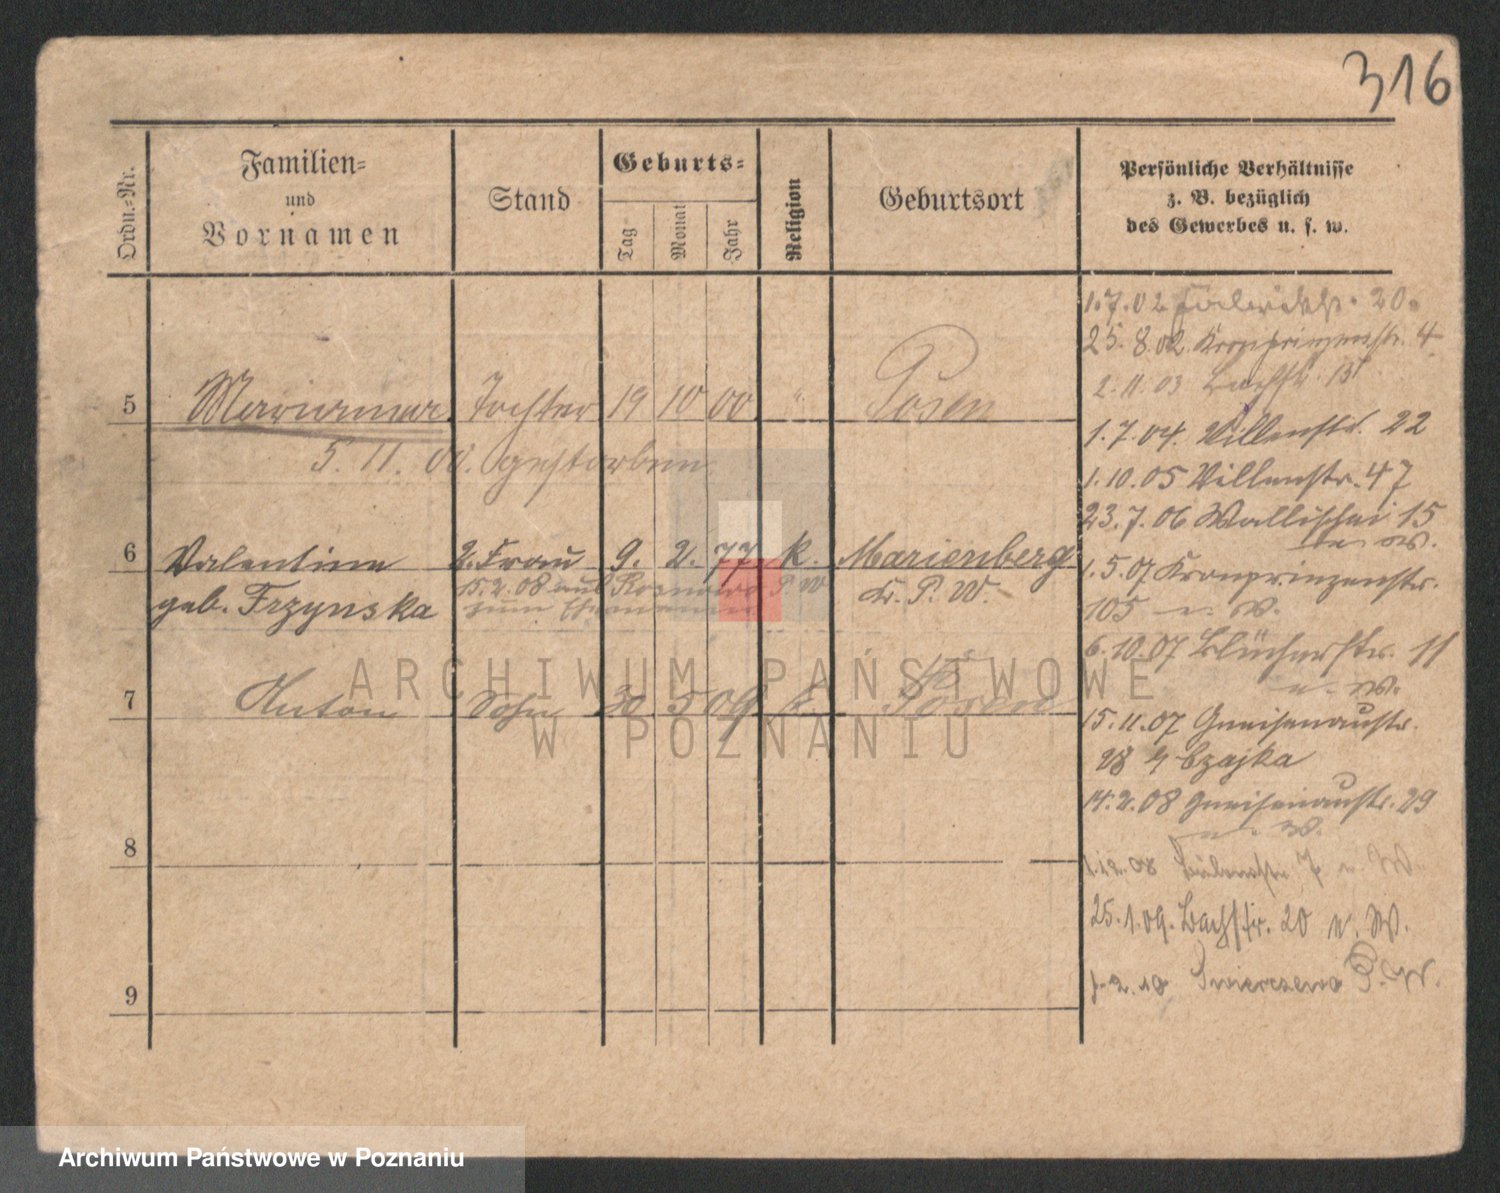 316
Ordn.-Nr.
Familien-
und
Vornamen
Stand
Geburts-
Tag
Monat
Jahr
Religion
Geburtsort
Persönliche Verhältnisse
z. B. bezüglich
des Gewerbes u. s. w.
5 Marianna Tochter 19 10 00 " Posen
5. 11. 00. gestorben
6 Valentine 2. Frau 9. 2. 77 k. Marienberg
geb. Frzynska Kr. P. W.
15.2.08 aus P. W
zum
7 Anton Sohn 20 5 09 k. Posen
8
9
1.7.02 20.
25.8.02. Kronprinzenstr. 4
2.11.03 Bachstr. 13
1.7.04. Villenstr. 22
1.10.05 Villenstr. 47
23.7.06 Wallischei 15
u. W.
1.5.07 Kronprinzenstr.
105 u. W.
6.10.07 Blücherstr. 11
u. W.
15.11.07 Gneisenaustr.
28 b/ Czajka
14.2.08 Gneisenaustr. 29
u. W.
1.12.08 7 u. W.
25.1.09. Bachstr. 20 u. W.
1.2.10 Swierczewo P. W.
ARCHIWUM PAŃSTWOWE
W POZNANIU
Archiwum Państwowe w Poznaniu